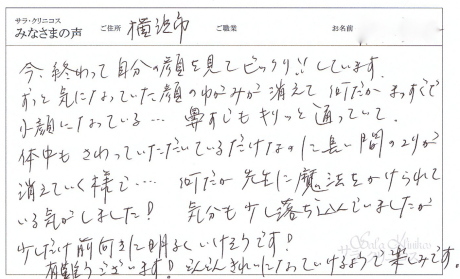 サラ・クリニコス
みなさまの声 ご住所 横浜市 ご職業 お名前
今、終わって自分の顔を見てビックリ!!しています。
ずっと気になっていた顔のゆがみが消えて 何だか まっすぐで
小顔になっている… 鼻すじもキリッと通っていて。
体中も さわっていただいているだけなのに長い間のコリが
消えていく様で… 何だか先生に魔法をかけられて
いる気がしました! 気分も少し落ち込んでいましたが
少しだけ前向きに明るくいけそうです!
有難うございます! どんどんきれいになっていけるようで楽しみです。